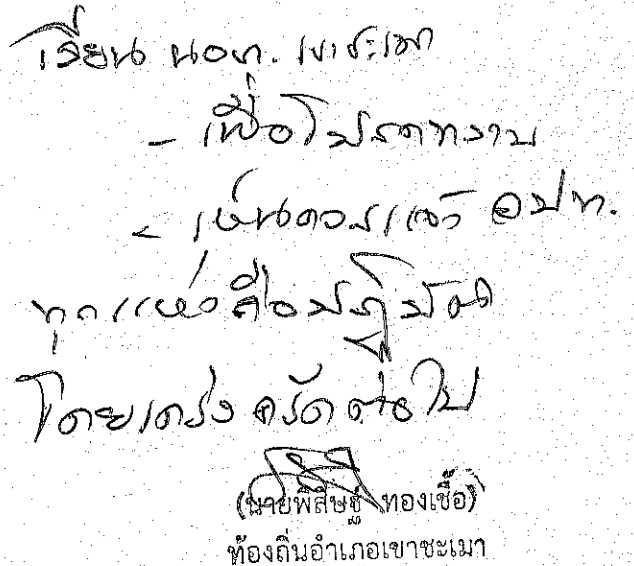 เรียน นอภ. เขาชะเมา
- เพื่อโปรดทราบ
- เห็นควรแจ้ง อปท.
ทุกแห่งถือปฏิบัติ
โดยเคร่งครัดต่อไป
(นายพิสิษฐ์ ทองเชื้อ)
ท้องถิ่นอำเภอเขาชะเมา